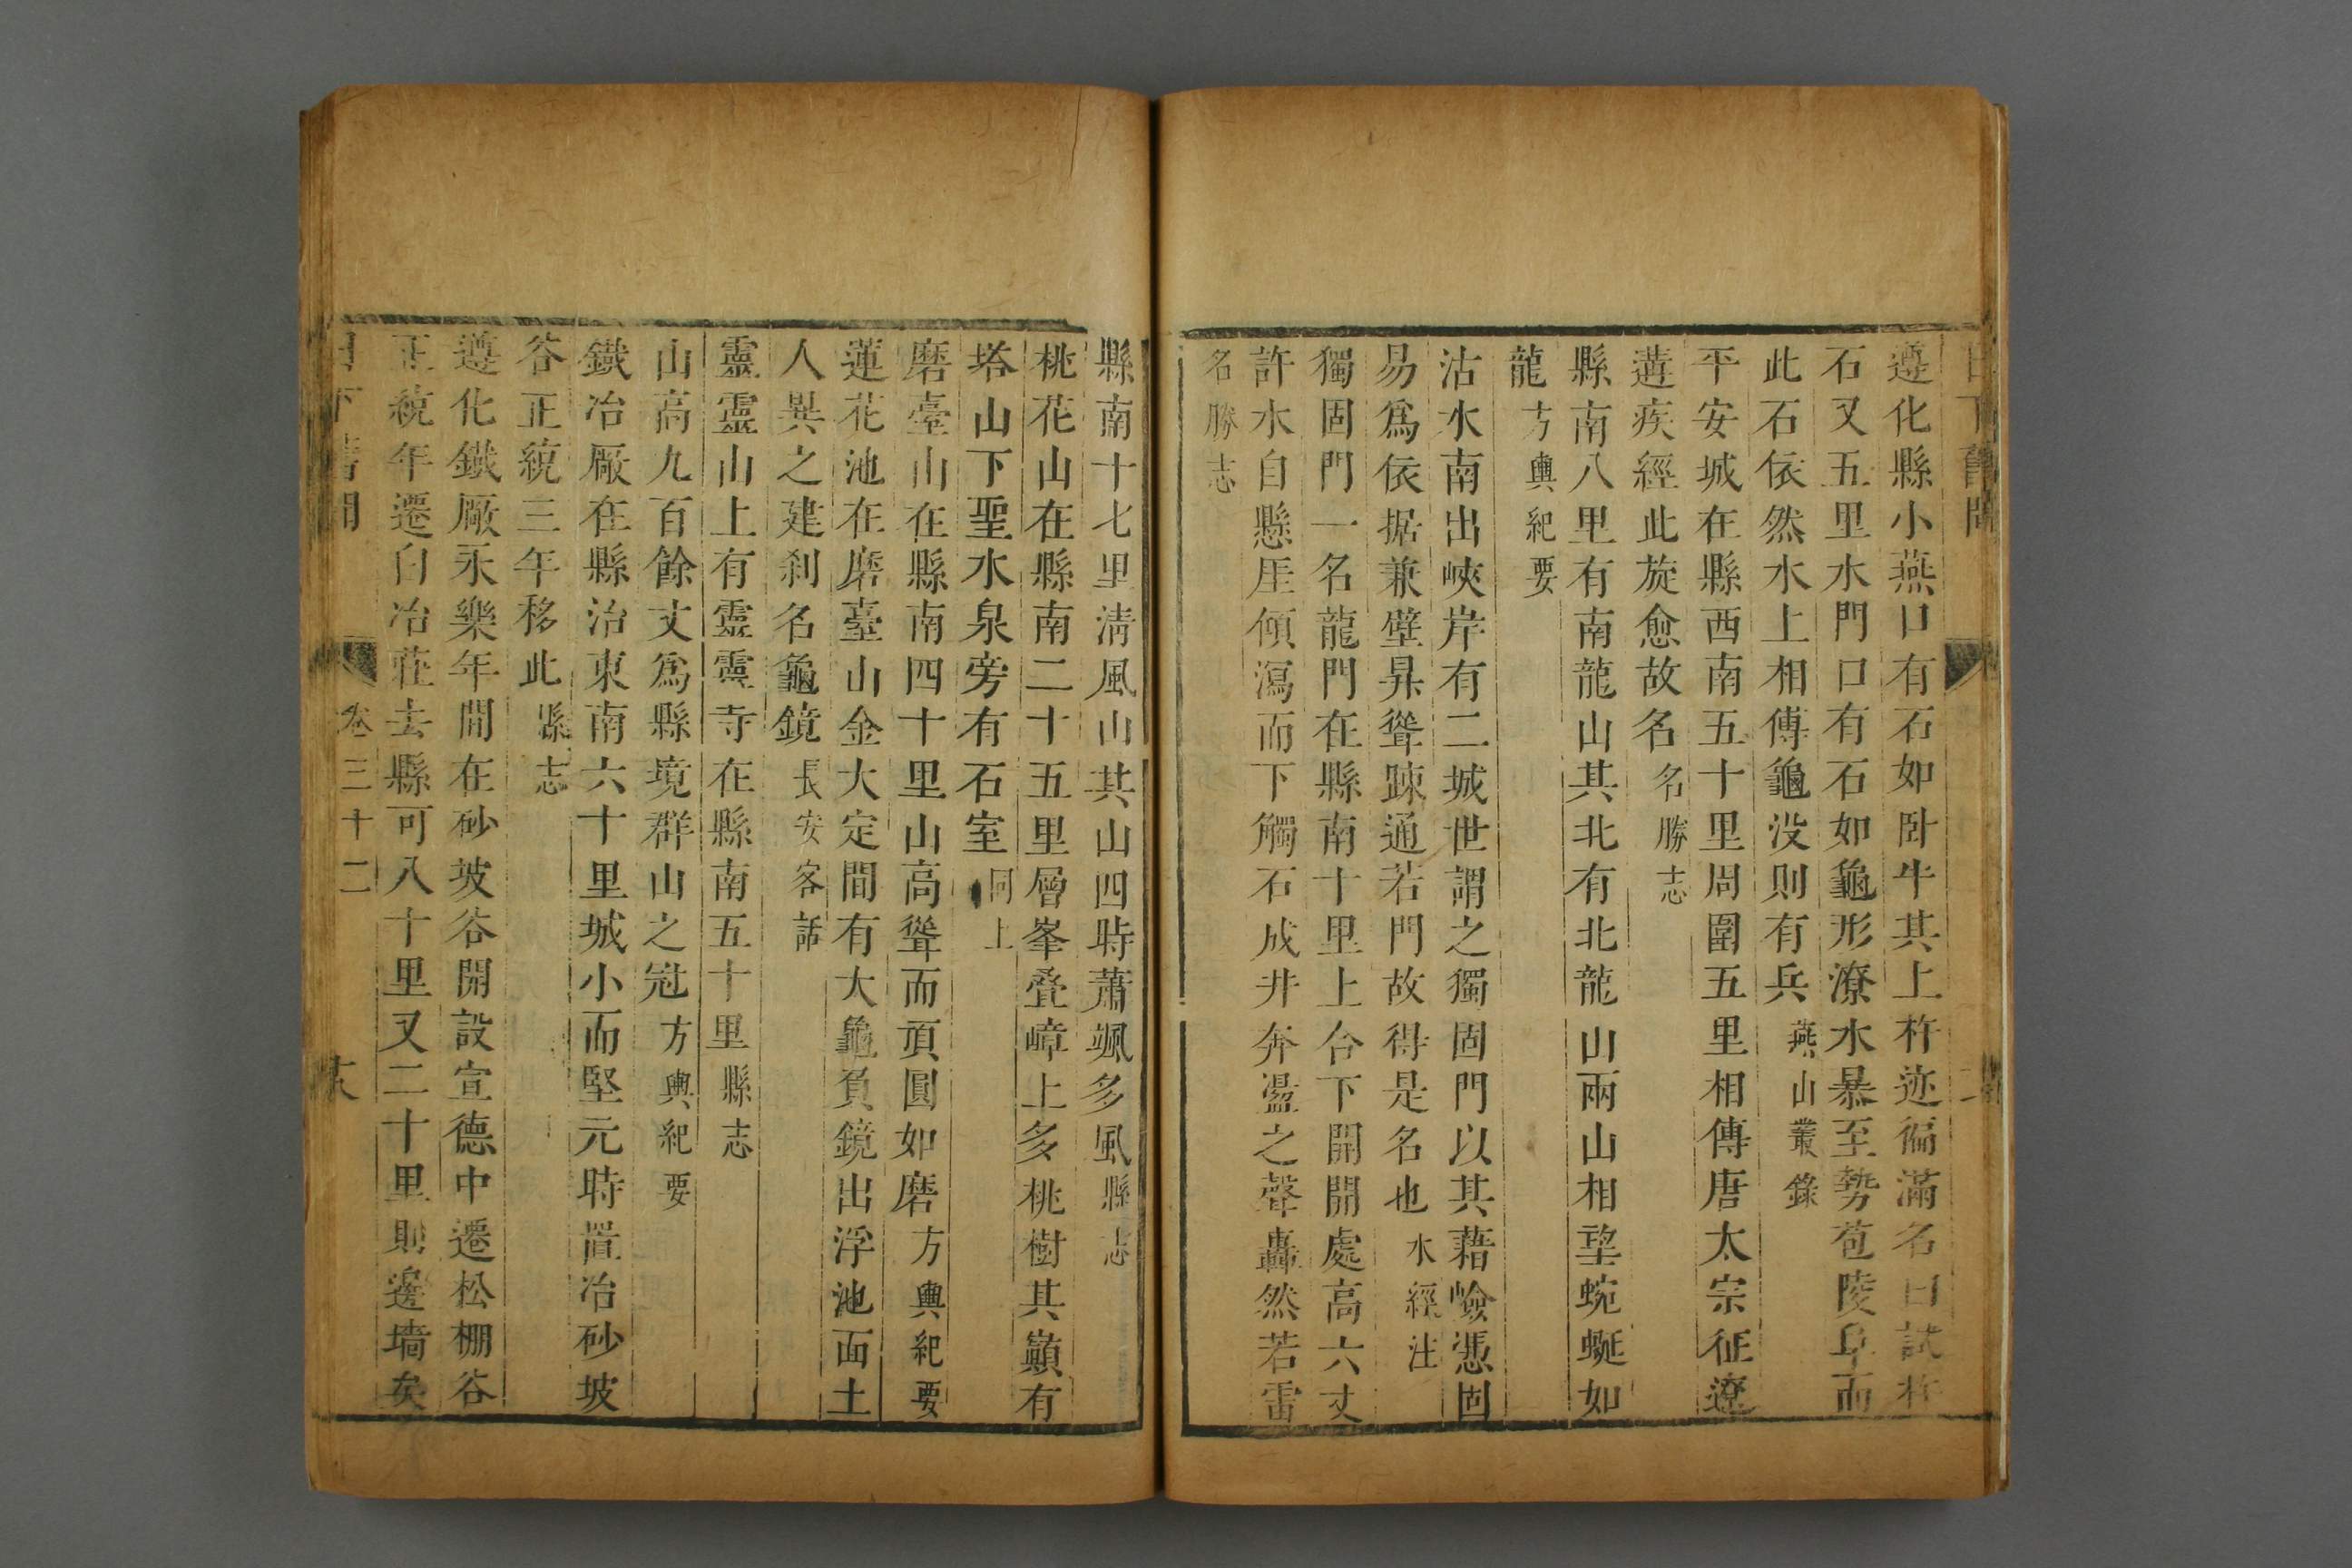 日下舊聞
遵化縣小燕口有石如卧牛其上杵迹徧滿名曰試杵
石又五里水門口有石如龜形潦水暴至勢苞陵阜而
此石依然水上相傳龜没則有兵燕山叢錄
平安城在縣西南五十里周圍五里相傳唐太宗征遼
遘疾經此旋愈故名名勝志
縣南八里有南龍山其北有北龍山兩山相望蜿蜒如
龍方輿紀要
沽水南出峽岸有二城世謂之獨固門以其藉嶮憑固
易爲依据兼壁昇聳疎通若門故得是名也水經注
獨固門一名龍門在縣南十里上合下開開處高六丈
許水自懸厓傾瀉而下觸石成井奔盪之聲轟然若雷
名勝志
縣南十七里淸風山其山四時蕭颯多風縣志
桃花山在縣南二十五里層峯疊嶂上多桃樹其巓有
塔山下聖水泉旁有石室同上
磨臺山在縣南四十里山高聳而頂圓如磨方輿紀要
蓮花池在磨臺山金大定間有大龜負鏡出浮池面土
人異之建刹名龜鏡長安客話
靈靈山上有靈靈寺在縣南五十里縣志
山高九百餘丈爲縣境群山之冠方輿紀要
鐵冶厰在縣治東南六十里城小而堅元時置冶砂坡
谷正統三年移此縣志
遵化鐵厰永樂年間在砂坡谷開設宣德中遷松棚谷
正統年遷白冶莊去縣可八十里又二十里則邊墻矣
日下舊聞 卷三十二